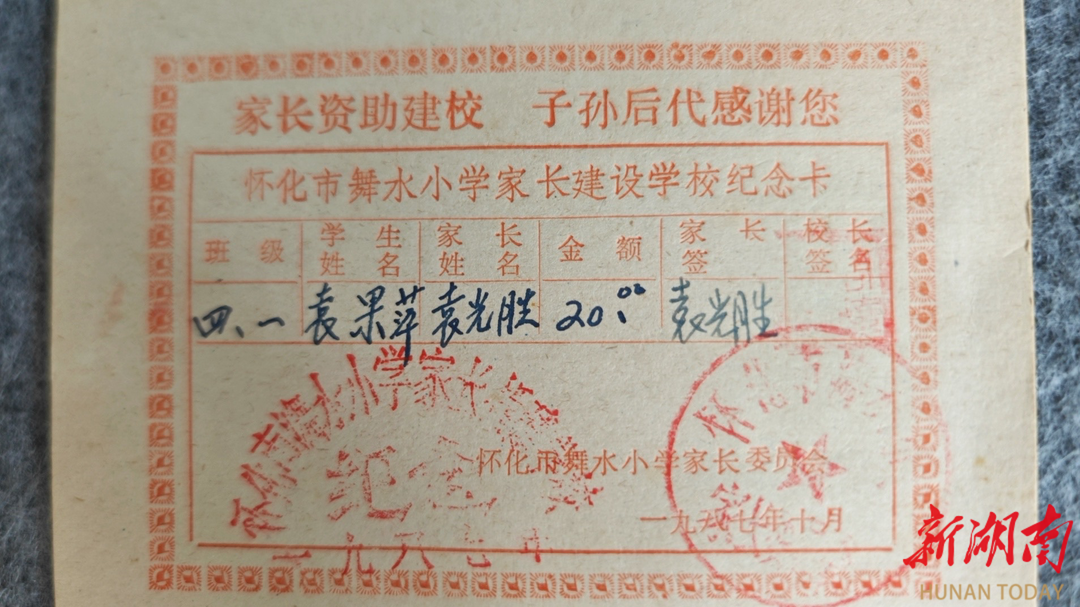 家长资助建校 子孙后代感谢您
怀化市舞水小学家长建设学校纪念卡
班级 学生姓名 家长姓名 金额 家长签 校长签名
四、一 袁果萍 袁光胜 20.00 袁光胜
纪念
怀化市舞水小学家长委员会
一九八七年十月
一九八七年
新湖南
HUNAN TODAY